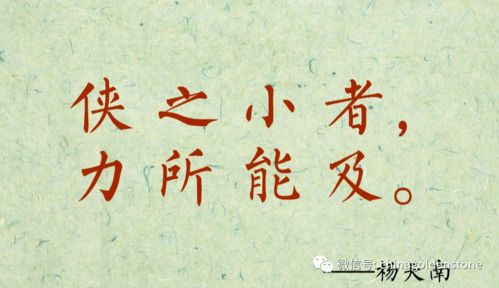 侠之小者，
力所能及。
微信号: chinagoldenstone
——杨天南